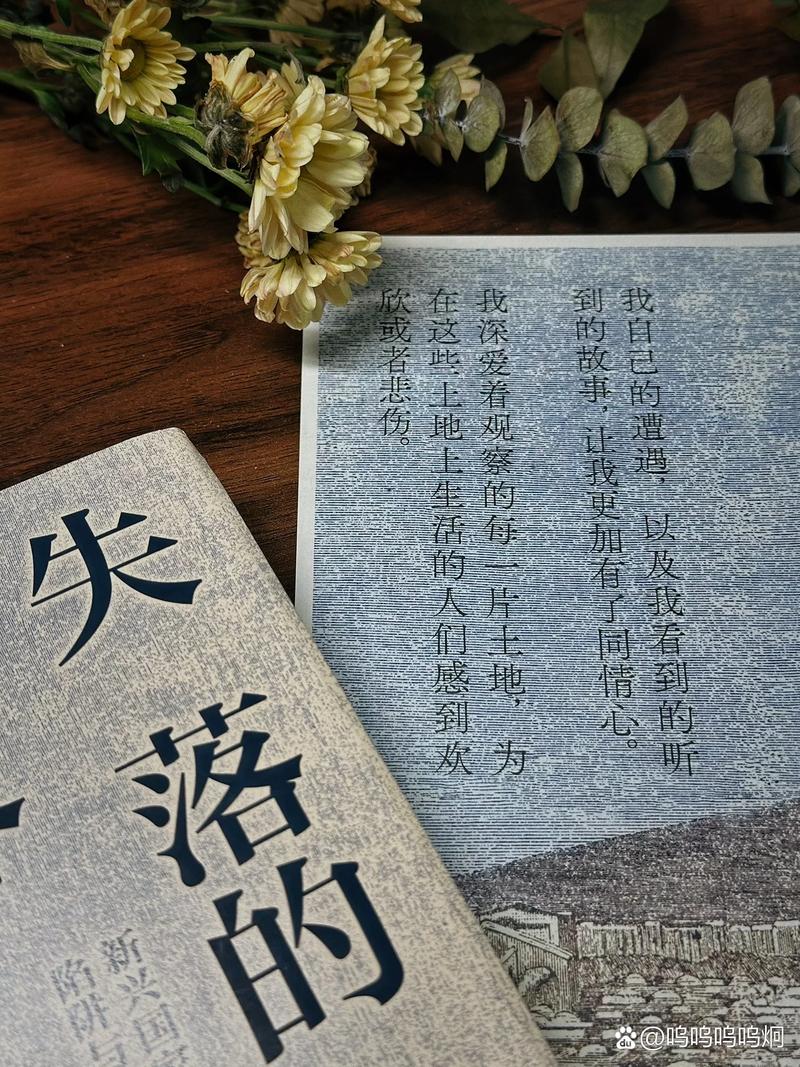 我自己的遭遇，以及我看到的听
到的故事，让我更加有了同情心。
我深爱着观察的每一片土地，为
在这些土地上生活的人们感到欢
欣或者悲伤。
失
落的
新兴国家
陷阱与
@呜呜呜呜炯